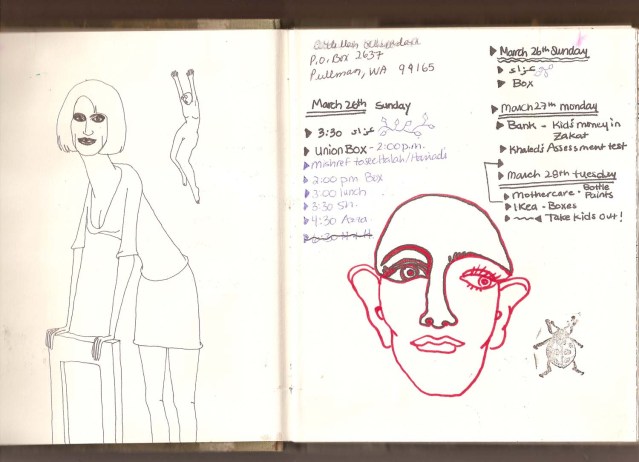 P.O. Box 2637
Pullman, WA 99165
March 26th Sunday
▶ 3:30 عزاء
▶ Union Box - 2:00 p.m.
▶ Mishref to see Halah/
▶ 2:00 p.m Box
▶ 3:00 lunch
▶ 3:30 Sh.
▶ 4:30 Azra
▶ March 26th Sunday
▶ عزاء
▶ Box
▶ March 27th monday
▶ Bank - Kid's money in
Zakat
▶ Khaled's Assessment test
▶ March 28th tuesday
▶ Mothercare - Bottle
Paints
▶ IKea - Boxes
Take kids out!